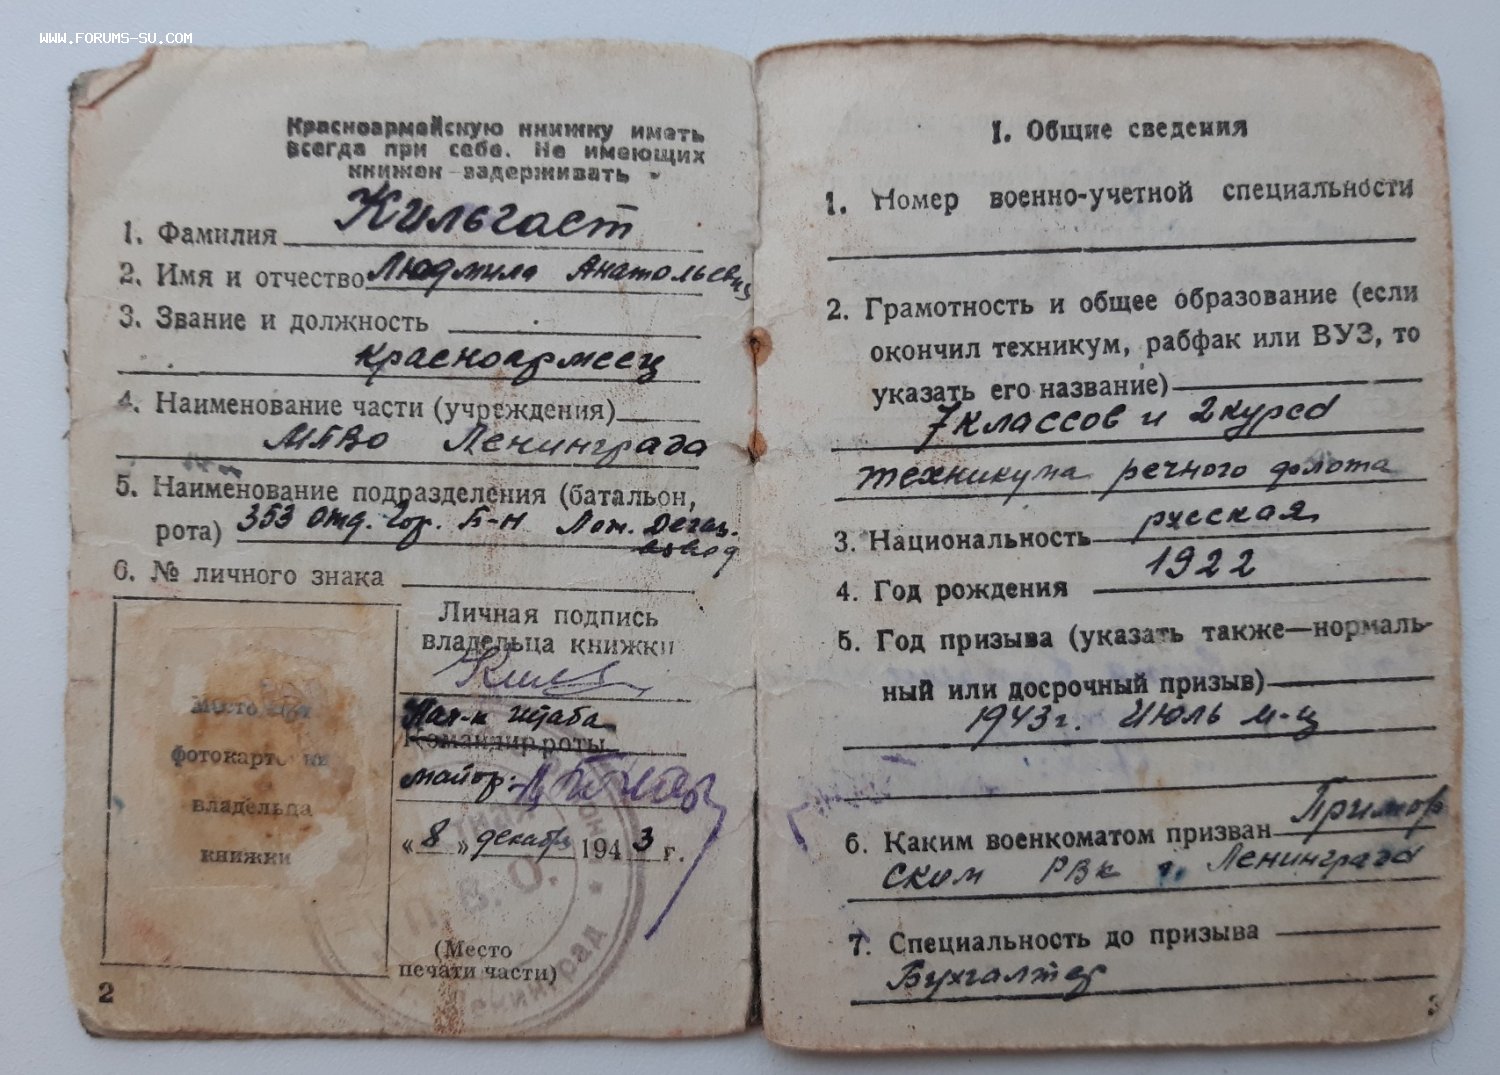 WWW.FORUMS-SU.COM
Красноармейскую книжку иметь
всегда при себе. Не имеющих
книжек задерживать
1. Фамилия Кильгаст
2. Имя и отчество Людмила Анатольевн
3. Звание и должность
красноармеец
4. Наименование части (учреждения)
МПВО Ленинграда
5. Наименование подразделения (батальон,
рота) 353 отд. Гор. Б-н Пож. Дегаз.
взвод
6. № личного знака
Личная подпись
владельца книжки
Место для
фотокарточки
владельца
книжки
Нач-к штаба
Командир роты
майор:
„8" декабр 1943 г.
П. В. О.
Ленинград
(Место
печати части)
2
I. Общие сведения
1. Номер военно-учетной специальности
2. Грамотность и общее образование (если
окончил техникум, рабфак или ВУЗ, то
указать его название)
7 классов и 2 курса
техникума речного флота
3. Национальность русская
4. Год рождения 1922
5. Год призыва (указать также—нормаль-
ный или досрочный призыв)
1943 г. Июль м-ц
6. Каким военкоматом призван Примор
ским РВК г. Ленинграда
7. Специальность до призыва
Бухгалтер
3